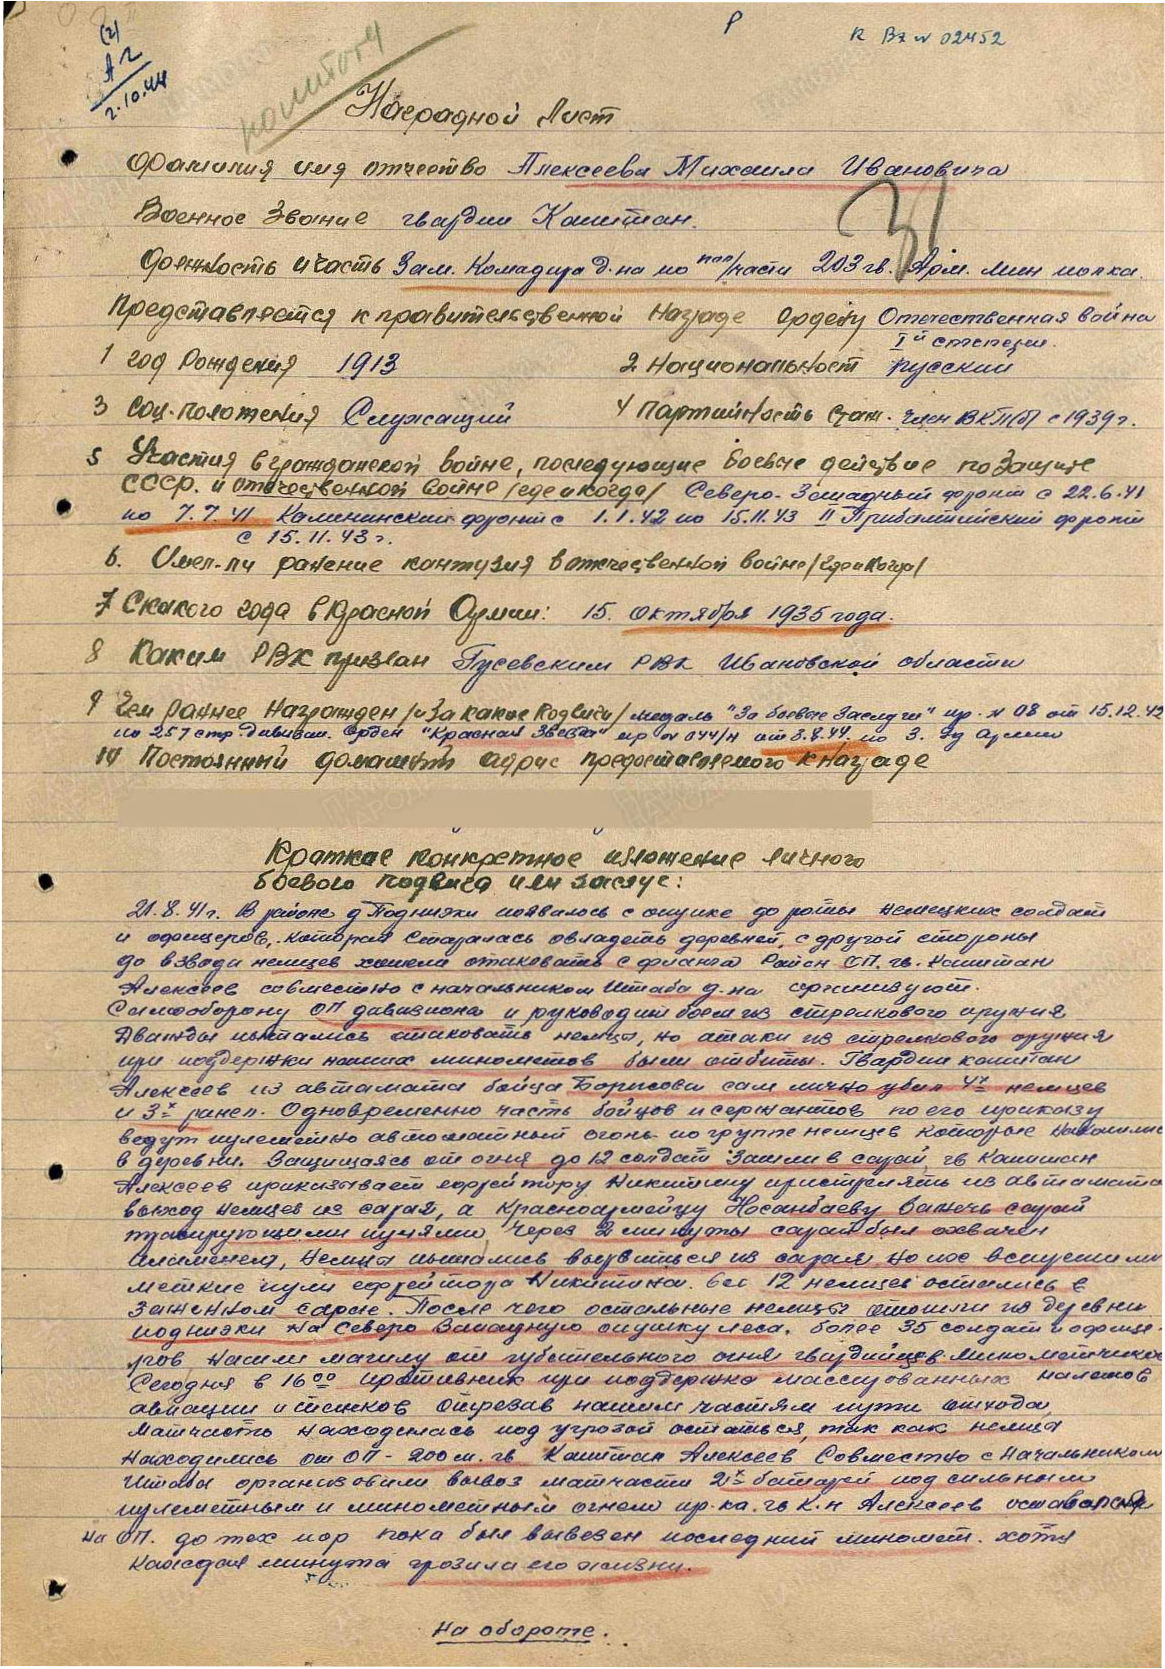 (2)
2.10.44
Р
Наградной Лист
Фамилия имя отчество Алексеева Михаила Ивановича
Военное Звание гвардии Капитан.
Должность и часть Зам. Командира д-на по пол/части 203 гв. Арм. мин полка.
Представляется к правительственной Награде Ордену Отечественная война
Iй степени.
1 год Рождения 1913 2. Национальност русский
3 Соц. положения Служащий 4 Партийность стаж. член ВКП(б) с 1939 г.
5 Участия в гражданской войне, последующие боевые действие по защите
СССР. и отечественной войне /где и когда/ Северо-Западный фронт с 22.6.41
по 7.7.41 Калининский фронт с 1.1.42 по 15.11.43 II Прибалтийский фронт
с 15.11.43 г.
6. Имел-ли ранение контузия в отечественной войне /где и когда/
7 С какого года в Красной Армии: 15. октября 1935 года.
8 Каким РВК призван Гусевским РВК Ивановской области
9 Чем раннее Награжден /и За какие подвиги/ медаль "За боевые Заслуги" пр. № 08 от 15.12.42
по 257 стр дивизии. Орден "Красная Звезда" пр № 044/н от 3.8.44. по 3. Уд Армии
10 Постоянный домашний адрис предоставляемого к Награде
Краткое конкретное изложение личного
боевого подвига или заслуг:
21.8.41г. В районе д Подняки появилось с опушке до роты немецких солдат
и офицеров, которая старалась овладеть деревней, с другой стороны
до взвода немцев хотели атаковать с фланга Район ОП. гв. Капитан
Алексеев совместно с начальником Штаба д-на организуют.
Самооборону ОП дивизиона и руководит боем из стрелкового оружия
Дважды пытались атаковать немцы, но атаки из стрелкового оружия
при поддержки наших минометов были отбиты. Гвардии капитан
Алексеев из автамата бойца Борисова сам лично убил 4х немцев
и 3х ранел. Одновременно часть бойцов и сержантов по его приказу
ведут пулеметно автоматный огонь по группе немцев которые находились
в деревни. Защищаясь от огня до 12 солдат зашли в сарай, гв Капитан
Алексеев приказывает ефрейтору Никитину пристрелять из автамата
выход немцев из сарая, а Красноармейцу Носанбаеву зажечь сарай
трасирующими пулями, через 2 минуты сарай был охвачен
пламенем, немцы пытались вырваться из сарая но пое
меткие пули ефрейтора Никитина. все 12 немцев остались в
зажженном сарае. После чего остальные немцы отошли из деревни
подняки на Северо Западную опушку леса. более 35 солдат и офице-
ров нашли магилу от губительного огня гвардийцев-минометчиков
Сегодня в 16 00 противник при поддержке массированных налетов
авиации и танков отрезав нашим частям пути отхода,
Матчасть находилась под угрозой остаться, так как немцы
находились от ОП - 200 м. гв Капитан Алексеев Совместно с Начальником
Штаба организовали вывоз матчасти 2х батарей под сильным
пулеметным и минометным огнем пр-ка. гв к-н Алексеев оставался
на ОП. до тех пор пока был вывезен последний миномет. хотя
каждая минута грозила его жизни.
На обороте.